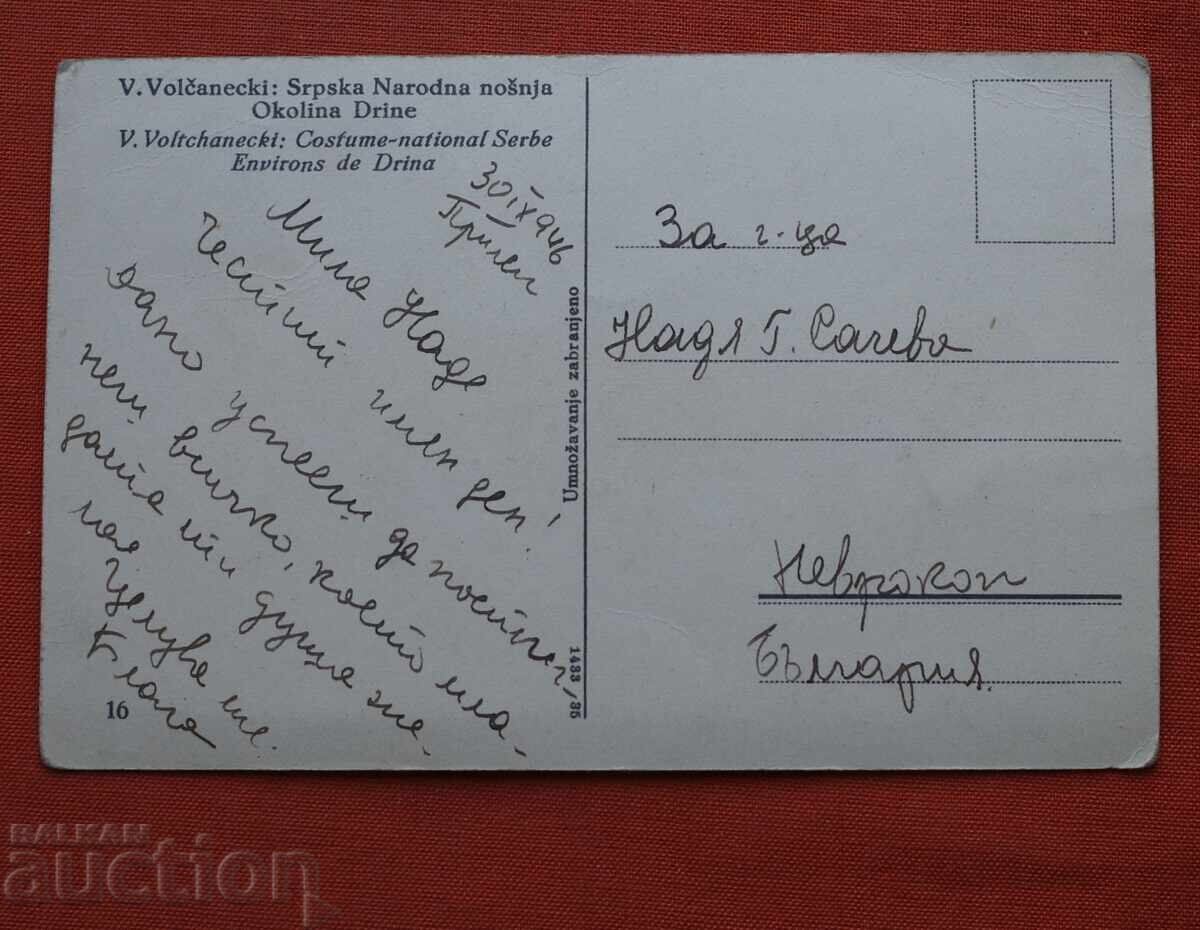 V. Volčanecki: Srpska Narodna nošnja
Okolina Drine
V. Voltchanecki: Costume-national Serbe
Environs de Drina
30.IX 946
Прилеп
Мила Наде
Честит имен ден!
дано успееш да постиг-
неш всичко, което мла-
дата ти душа же-
лае
Целува те.
Блага
16
Umnožavanje zabranjeno
1433/36
За г-ца
Надя Г. Сачева
Неврокоп
България.
BALKAN
auction